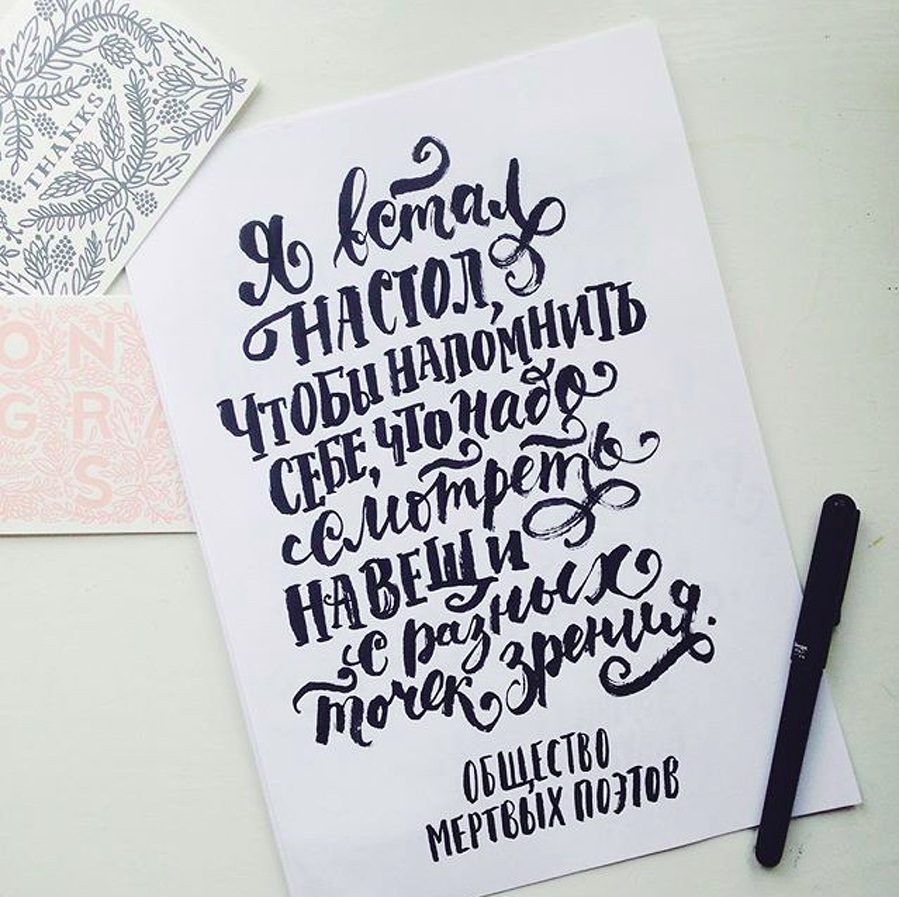 THANKS
ON
GRA
S
Я встал
НА СТОЛ,
ЧТОБЫ НАПОМНИТЬ
СЕБЕ, ЧТО надо
смотреть
НА ВЕЩИ
с разных
точек зрения.
ОБЩЕСТВО
МЕРТВЫХ ПОЭТОВ